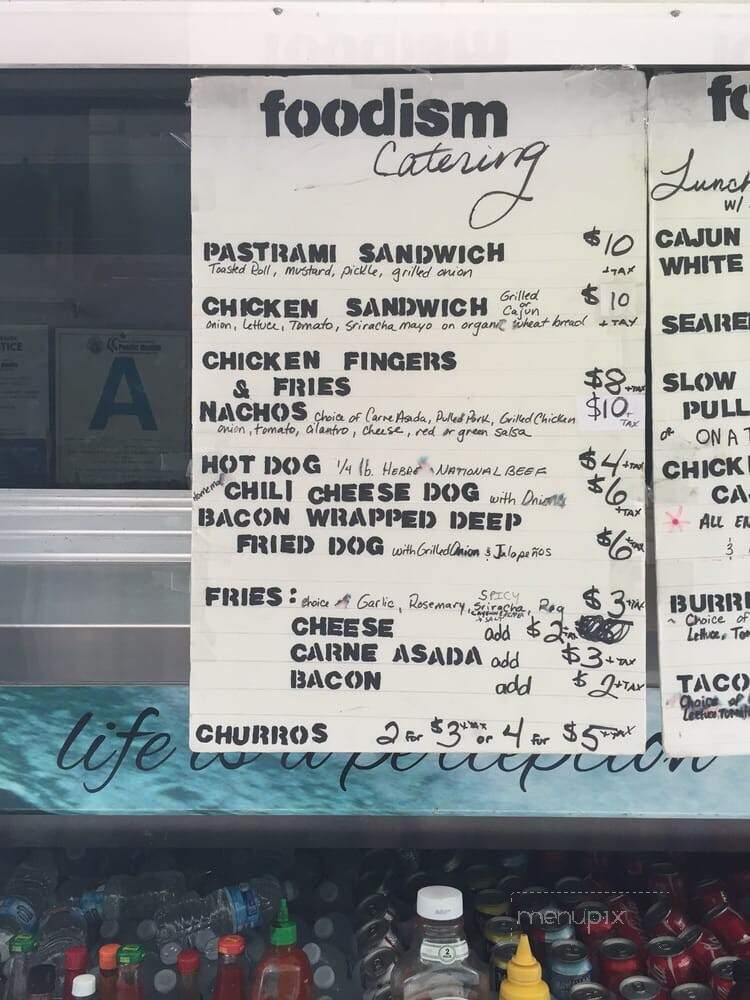 foodism
Catering
PASTRAMI SANDWICH $10 +TAX
Toasted Roll, mustard, pickle, grilled onion
CHICKEN SANDWICH Grilled or Cajun $10 +TAX
onion, Lettuce, Tomato, Sriracha mayo on organic wheat bread
CHICKEN FINGERS
& FRIES $8 +TAX
NACHOS choice of Carne Asada, Pulled Pork, Grilled Chicken $10 + TAX
onion, tomato, cilantro, cheese, red or green salsa
HOT DOG 1/4 lb. HEBREW NATIONAL BEEF $4 +TAX
Homemade CHILI CHEESE DOG with Onions $6 +TAX
BACON WRAPPED DEEP
FRIED DOG with Grilled Onion & Jalapeños $6 +TAX
FRIES: choice of Garlic, Rosemary, SPICY Sriracha, Reg $3 +TAX
CHEESE add $2 +TAX
CARNE ASADA add $3 +TAX
BACON add $2 +TAX
CHURROS 2 for $3 +TAX or 4 for $5 +TAX
fo
Lunch
w/
CAJUN
WHITE
SEARE
SLOW
PULL
ON A T
CHICK
CA
ALL EN
&
BURR
Choice of
Lettuce, Tom
TACO
Choice of
Lettuce, Tomat
TICE
Public Health
A
life is a perception
menupix